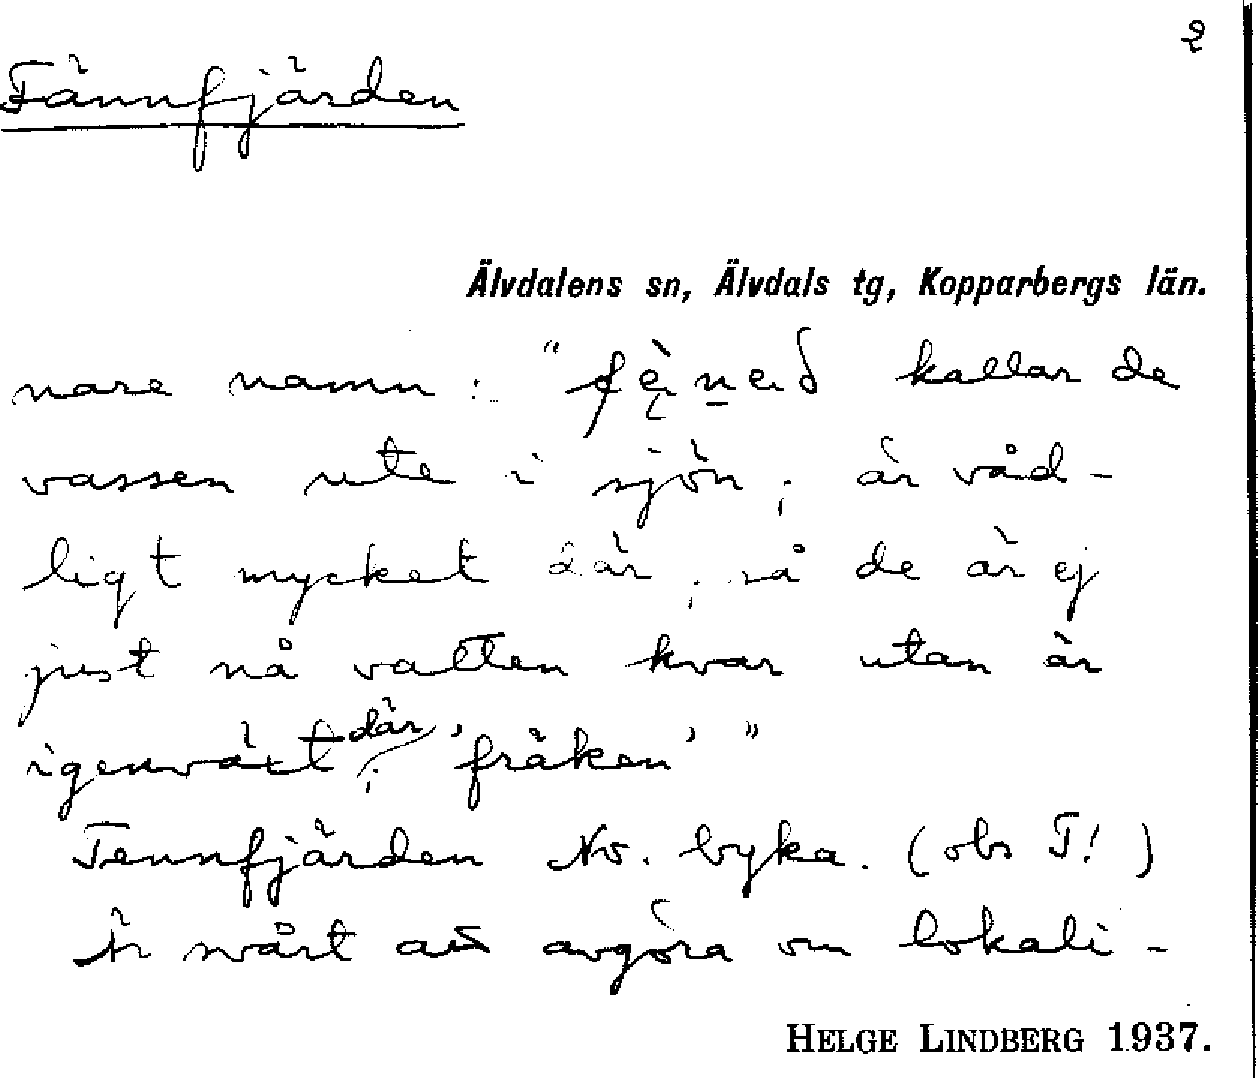 2
Fännfjärden
Älvdalens sn, Älvdals tg, Kopparbergs län.
nare namn: " kallar de
vassen ute i sjön; är våd-
ligt mycket där; så de är ej
just nå vatten kvar utan är
igenväxt där; 'fräken' "
Tennfjärden No. byka. (obs T!)
Är svårt att avgöra om lokali-
HELGE LINDBERG 1937.